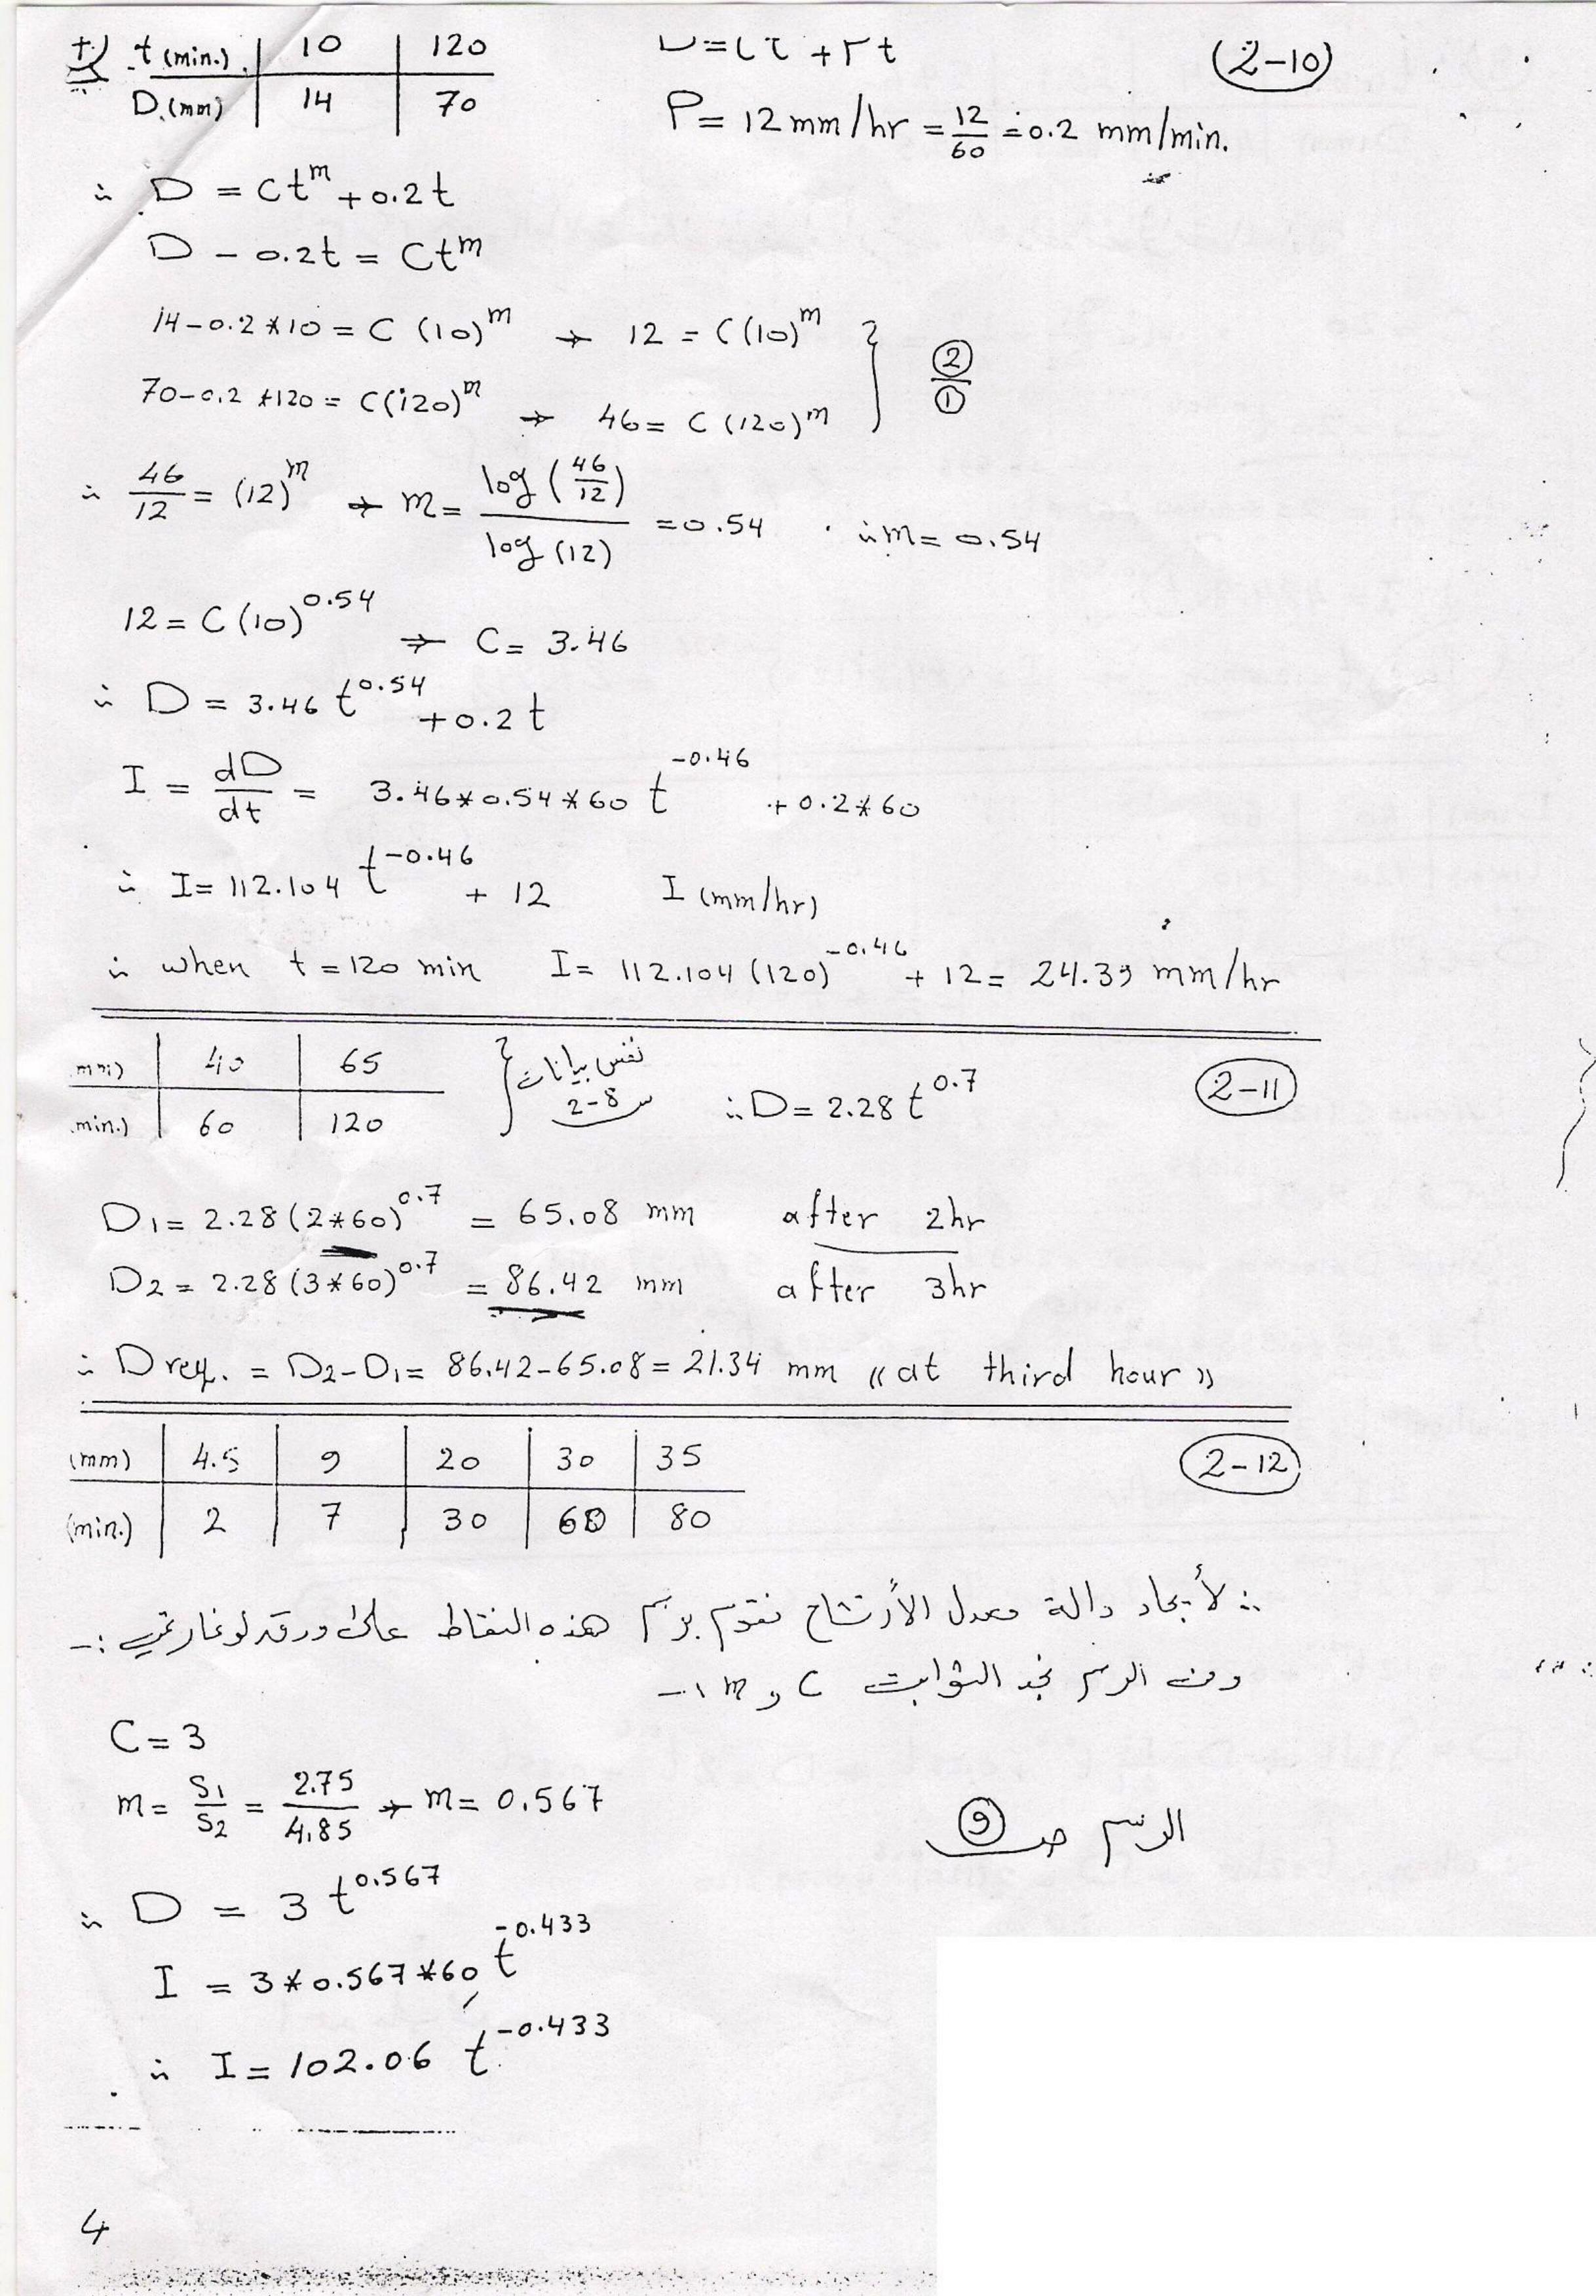 t (min.) | 10 | 120
D = ct + Pt
(2-10)
D.(mm) | 14 | 70
P = 12 mm/hr = 12/60 = 0.2 mm/min.
∴ D = Ct^m + 0.2t
D - 0.2t = Ct^m
14 - 0.2*10 = C (10)^m → 12 = C(10)^m
70 - 0.2*120 = C(120)^m → 46 = C (120)^m } ②/①
∴ 46/12 = (12)^m → m = log (46/12) / log (12) = 0.54 ∴ m = 0.54
12 = C (10)^0.54 → C = 3.46
∴ D = 3.46 t^0.54 + 0.2 t
I = dD/dt = 3.46*0.54*60 t^-0.46 + 0.2*60
∴ I = 112.104 t^-0.46 + 12 I (mm/hr)
∴ when t = 120 min I = 112.104 (120)^-0.46 + 12 = 24.39 mm/hr
mm) | 40 | 65
min.) | 60 | 120
} نفس بيانات
س 2-8
∴ D = 2.28 t^0.7
(2-11)
D1 = 2.28 (2*60)^0.7 = 65.08 mm after 2hr
D2 = 2.28 (3*60)^0.7 = 86.42 mm after 3hr
∴ D req. = D2 - D1 = 86.42 - 65.08 = 21.34 mm (( at third hour ))
(mm) | 4.5 | 9 | 20 | 30 | 35
(2-12)
(min.) | 2 | 7 | 30 | 60 | 80
∴ لأيجاد دالة معدل الأرتشاح نقوم برسم هذه النقاط على ورقة لوغارتمي :-
ومن الرسم نجد الثوابت C و m :-
C = 3
m = S1/S2 = 2.75/4.85 → m = 0.567
الرسم صـ 9
∴ D = 3 t^0.567
I = 3*0.567*60 t^-0.433
∴ I = 102.06 t^-0.433
4